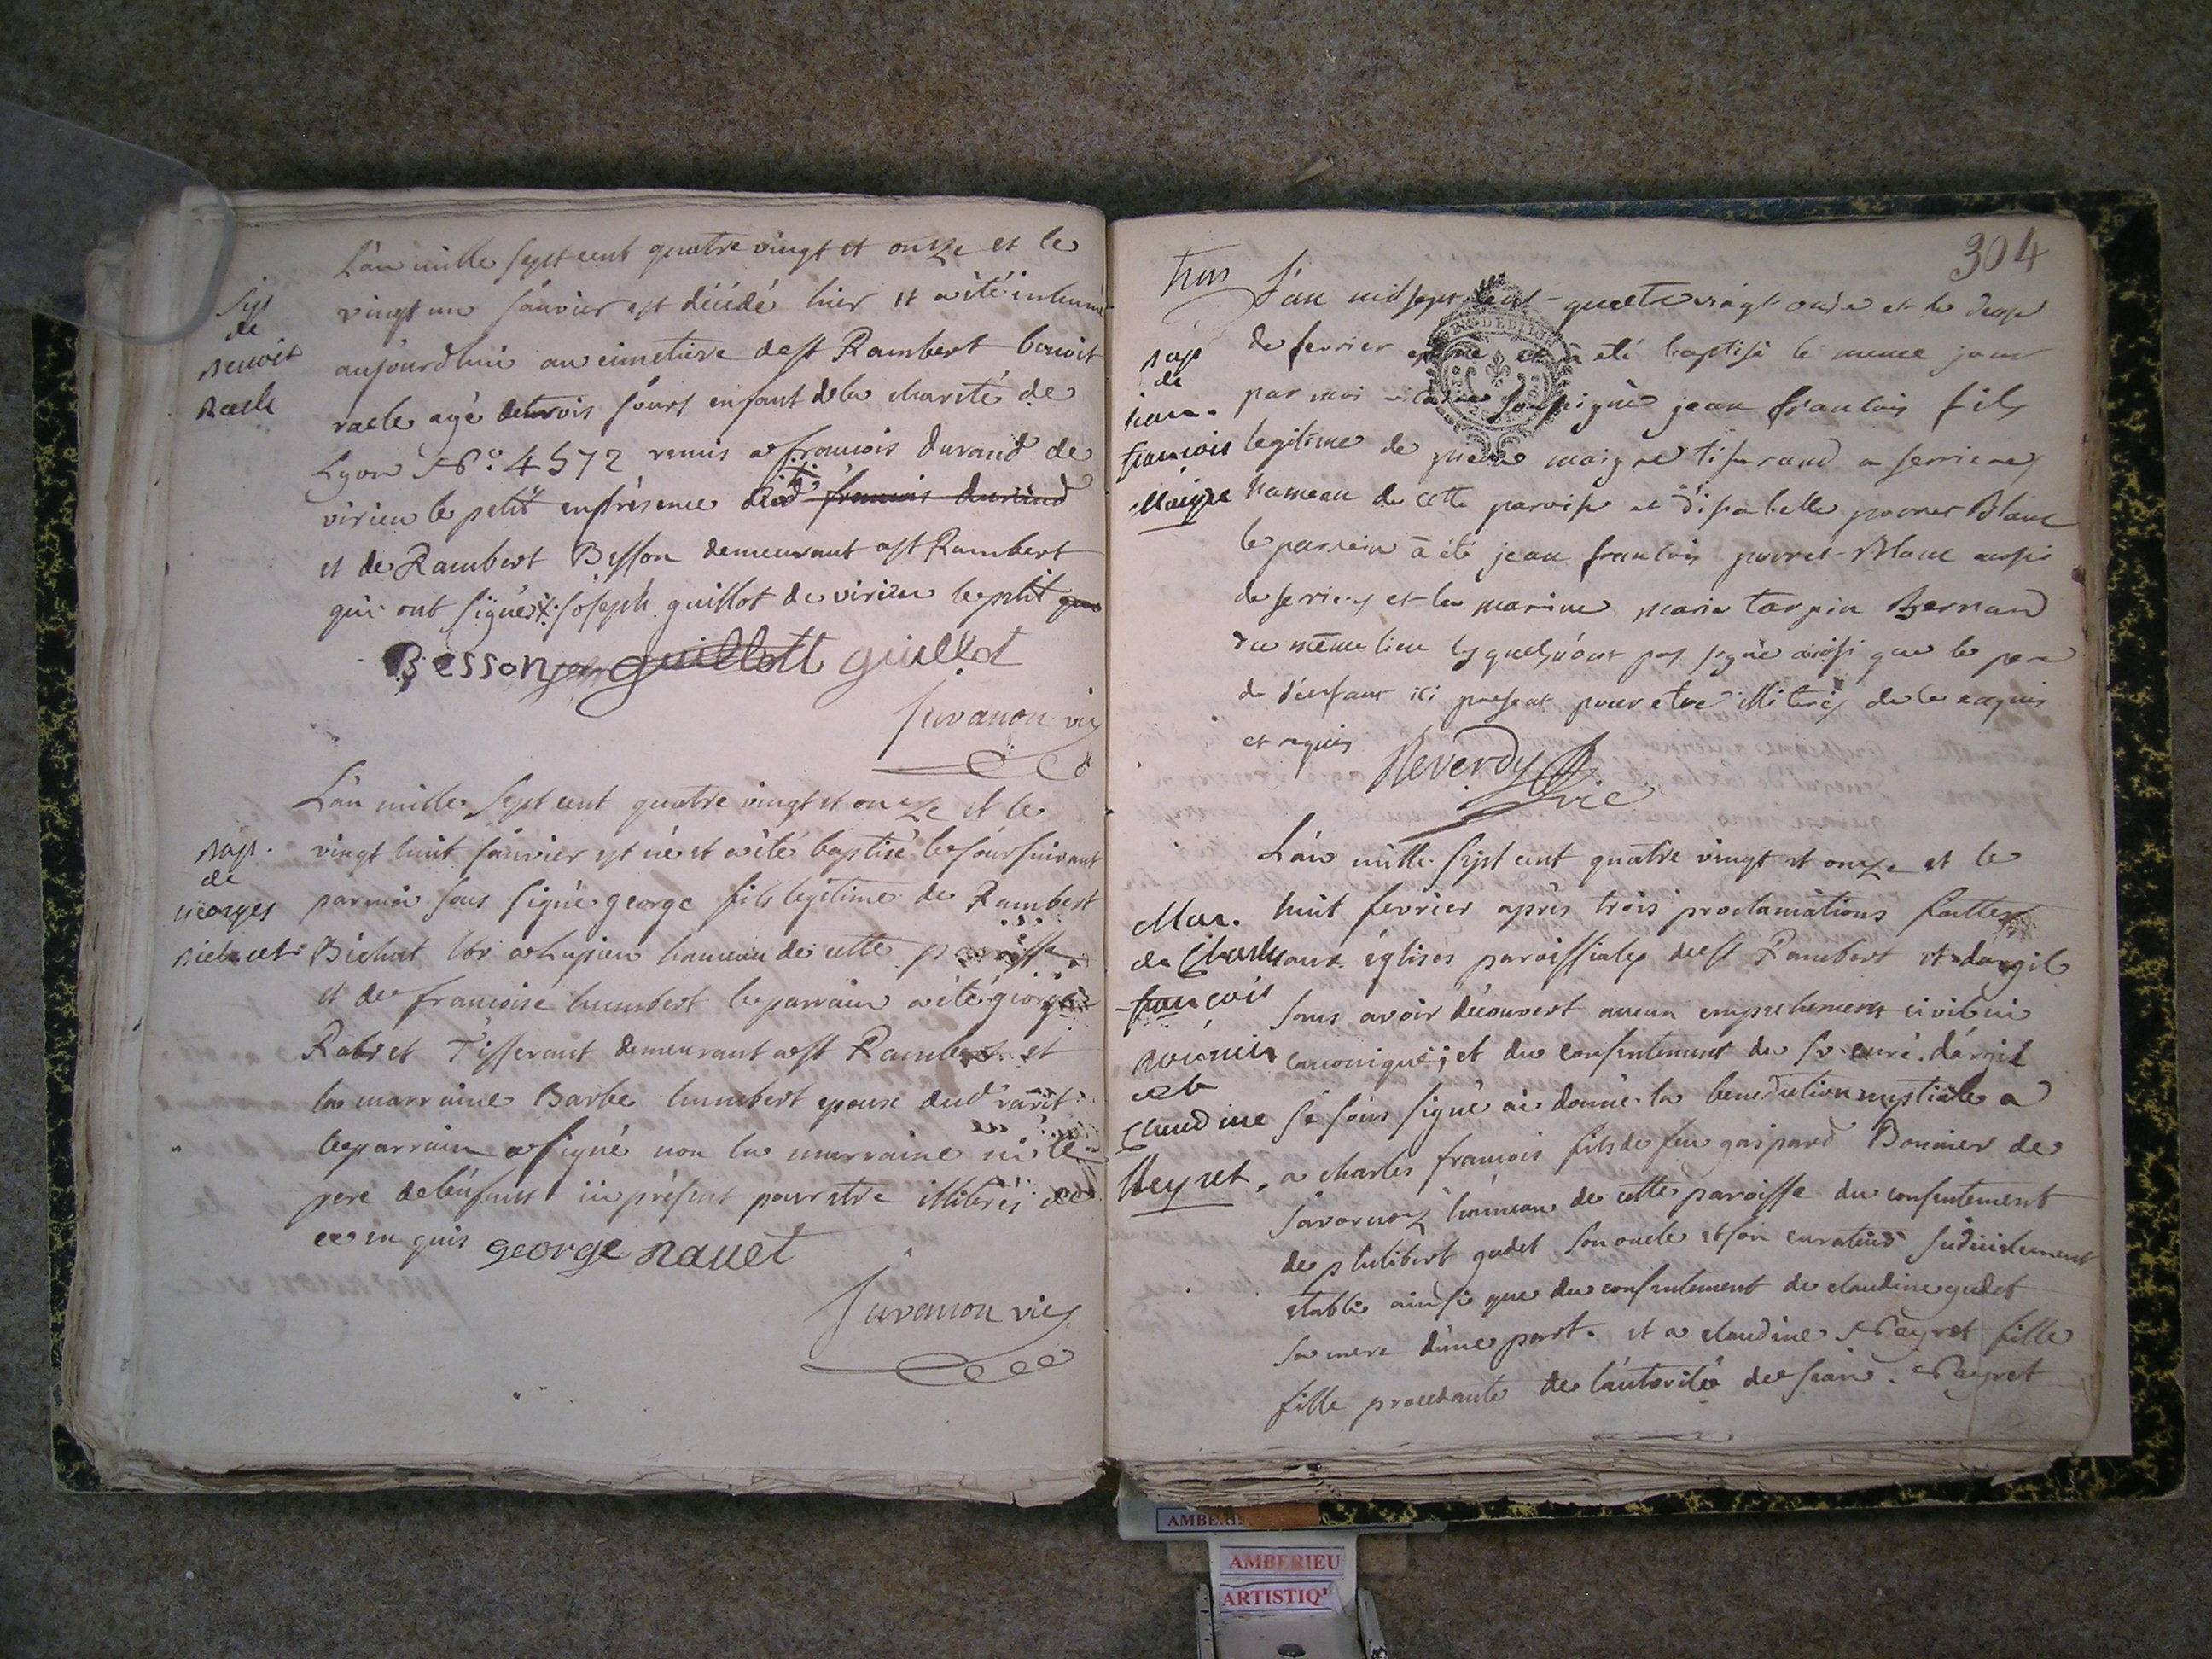 Sep
de
Benoit
Racle
L'an mille sept cent quatre vingt et onze et le
vingt un janvier est décédé hier et a été inhumé
aujourdhui au cimetiere de st Rambert benoit
racle agé de trois jours enfant de la charité de
Lyon N° 4572 remis a francois durand de
virieu le petit en présence dud francois durand
et de Rambert Besson demeurant a st Rambert
qui ont signé joseph guillot de virieu le petit
Besson guillott guillot
juvanon vic
Bap.
de
Georges
Bichat
L'an mille sept cent quatre vingt et onze et le
vingt huit janvier est né et a été baptisé le jour suivant
par moi sous signé george fils legitime de Rambert
Bichat hameau de cette paroisse
et de francoise humbert le parrain a été george
Tisserant demeurant a st Rambert et
la marraine Barbe humbert epouse dud
le parrain a signé non la marraine ni le
pere de l'enfant ici présent pour etre illiterés de
ce en quis george navet
juvanon vic
304
L'an mil sept cent quatre vingt onze et le deux
de fevrier est né et a été baptisé le meme jour
par moi vicaire soussigné jean francois fils
legitime de pierre maigre tisserand a serrieres
hameau de cette paroisse et d'isabelle pourret Blanc
le parrein a été jean francois pourret-Blanc aussi
de serrieres et la marine marie tarpin Bernard
du même lieu lesquels n'ont pas signé ainsi que le pere
de l'enfant ici present pour etre illiterés de ce enquis
et requis
Reverdy vic
Bap
de
jean
francois
Maigre
L'an mille sept cent quatre vingt et onze et le
huit fevrier après trois proclamations faittes
aux églises paroissiales de st Rambert et dargil
sans avoir découvert aucun empechement civil ni
canonique; et du consentement du sr curé d'argil
je sous signé ai donné la benediction nuptiale a
a charles francois fils de feu gaspard Bonnier de
hameau de cette paroisse du consentement
de philibert gudet son oncle et son curateur judiciairement
etabli ainsi que du consentement de claudine gudet
sa mere d'une part. et a claudine Neyret fille
fille procedante de l'autorité de jean Neyret
Mar.
de Charles
francois
et
Claudine
Neyret
AMBERIEU
ARTISTIQ'